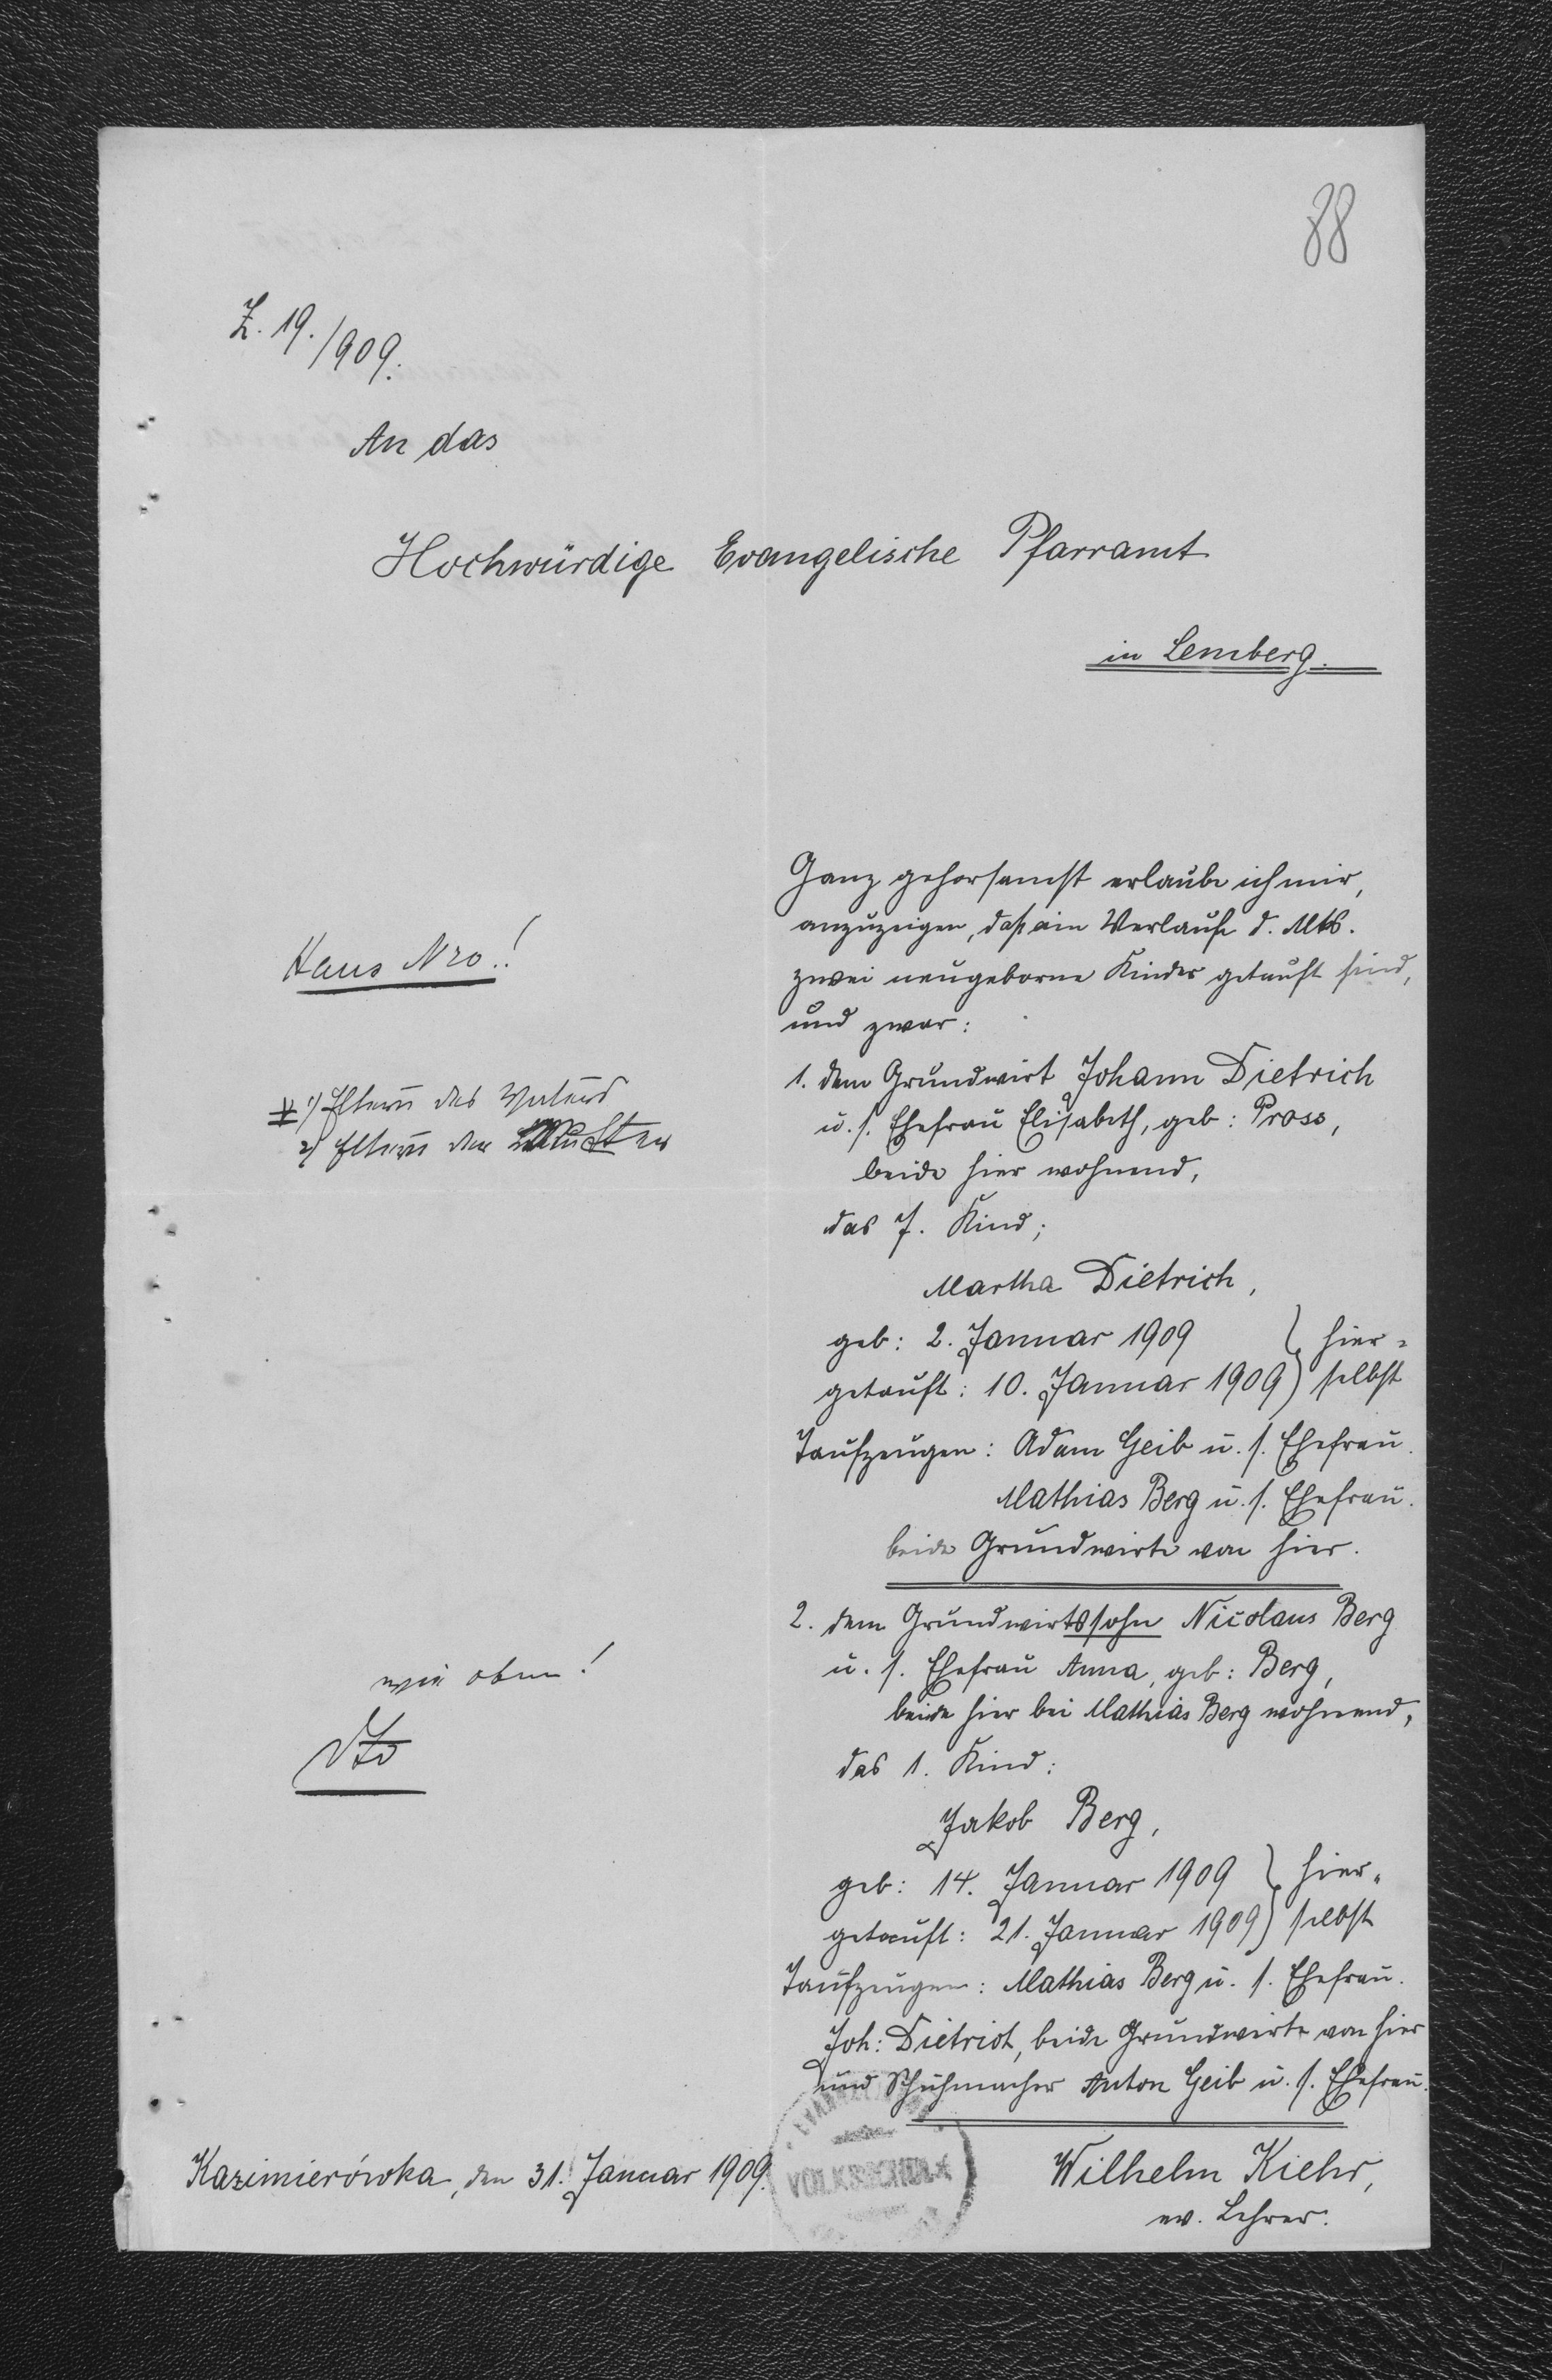 88
Z. 19./909.
An das
Hochwürdige Evangelische Pfarramt
in Lemberg.
Ganz gehorsamst erlaube ich mir,
anzuzeigen, daß im Verlaufe d. Mts.
zwei neugeborne Kinder getauft sind,
und zwar:
Haus Nro!!
1) Eltern des Vaters
2) Eltern der Mutter
1. dem Grundwirt Johann Dietrich
u. s. Ehefrau Elisabeth, geb: Pross,
beide hier wohnend,
das 7. Kind;
Martha Dietrich,
geb: 2. Januar 1909 } hier=
getauft: 10. Januar 1909 } selbst
Taufzeugen: Adam Geib u. s. Ehefrau.
Mathias Berg u. s. Ehefrau.
beide Grundwirte von hier.
2. dem Grundwirtssohn Nicolaus Berg
u. s. Ehefrau Anna, geb: Berg,
beide hier bei Mathias Berg wohnend,
das 1. Kind:
Jakob Berg,
geb: 14. Januar 1909 } hier=
getauft: 21. Januar 1909 } selbst
Taufzeugen: Mathias Berg u. s. Ehefrau.
Joh: Dietrict, beide Grundwirte von hier
und Schuhmacher Anton Geib u. s. Ehefrau.
wie oben!
dto
Kazimierówka, den 31. Januar 1909.
VOLKSSCHULE
Wilhelm Kiehr,
ev. Lehrer.